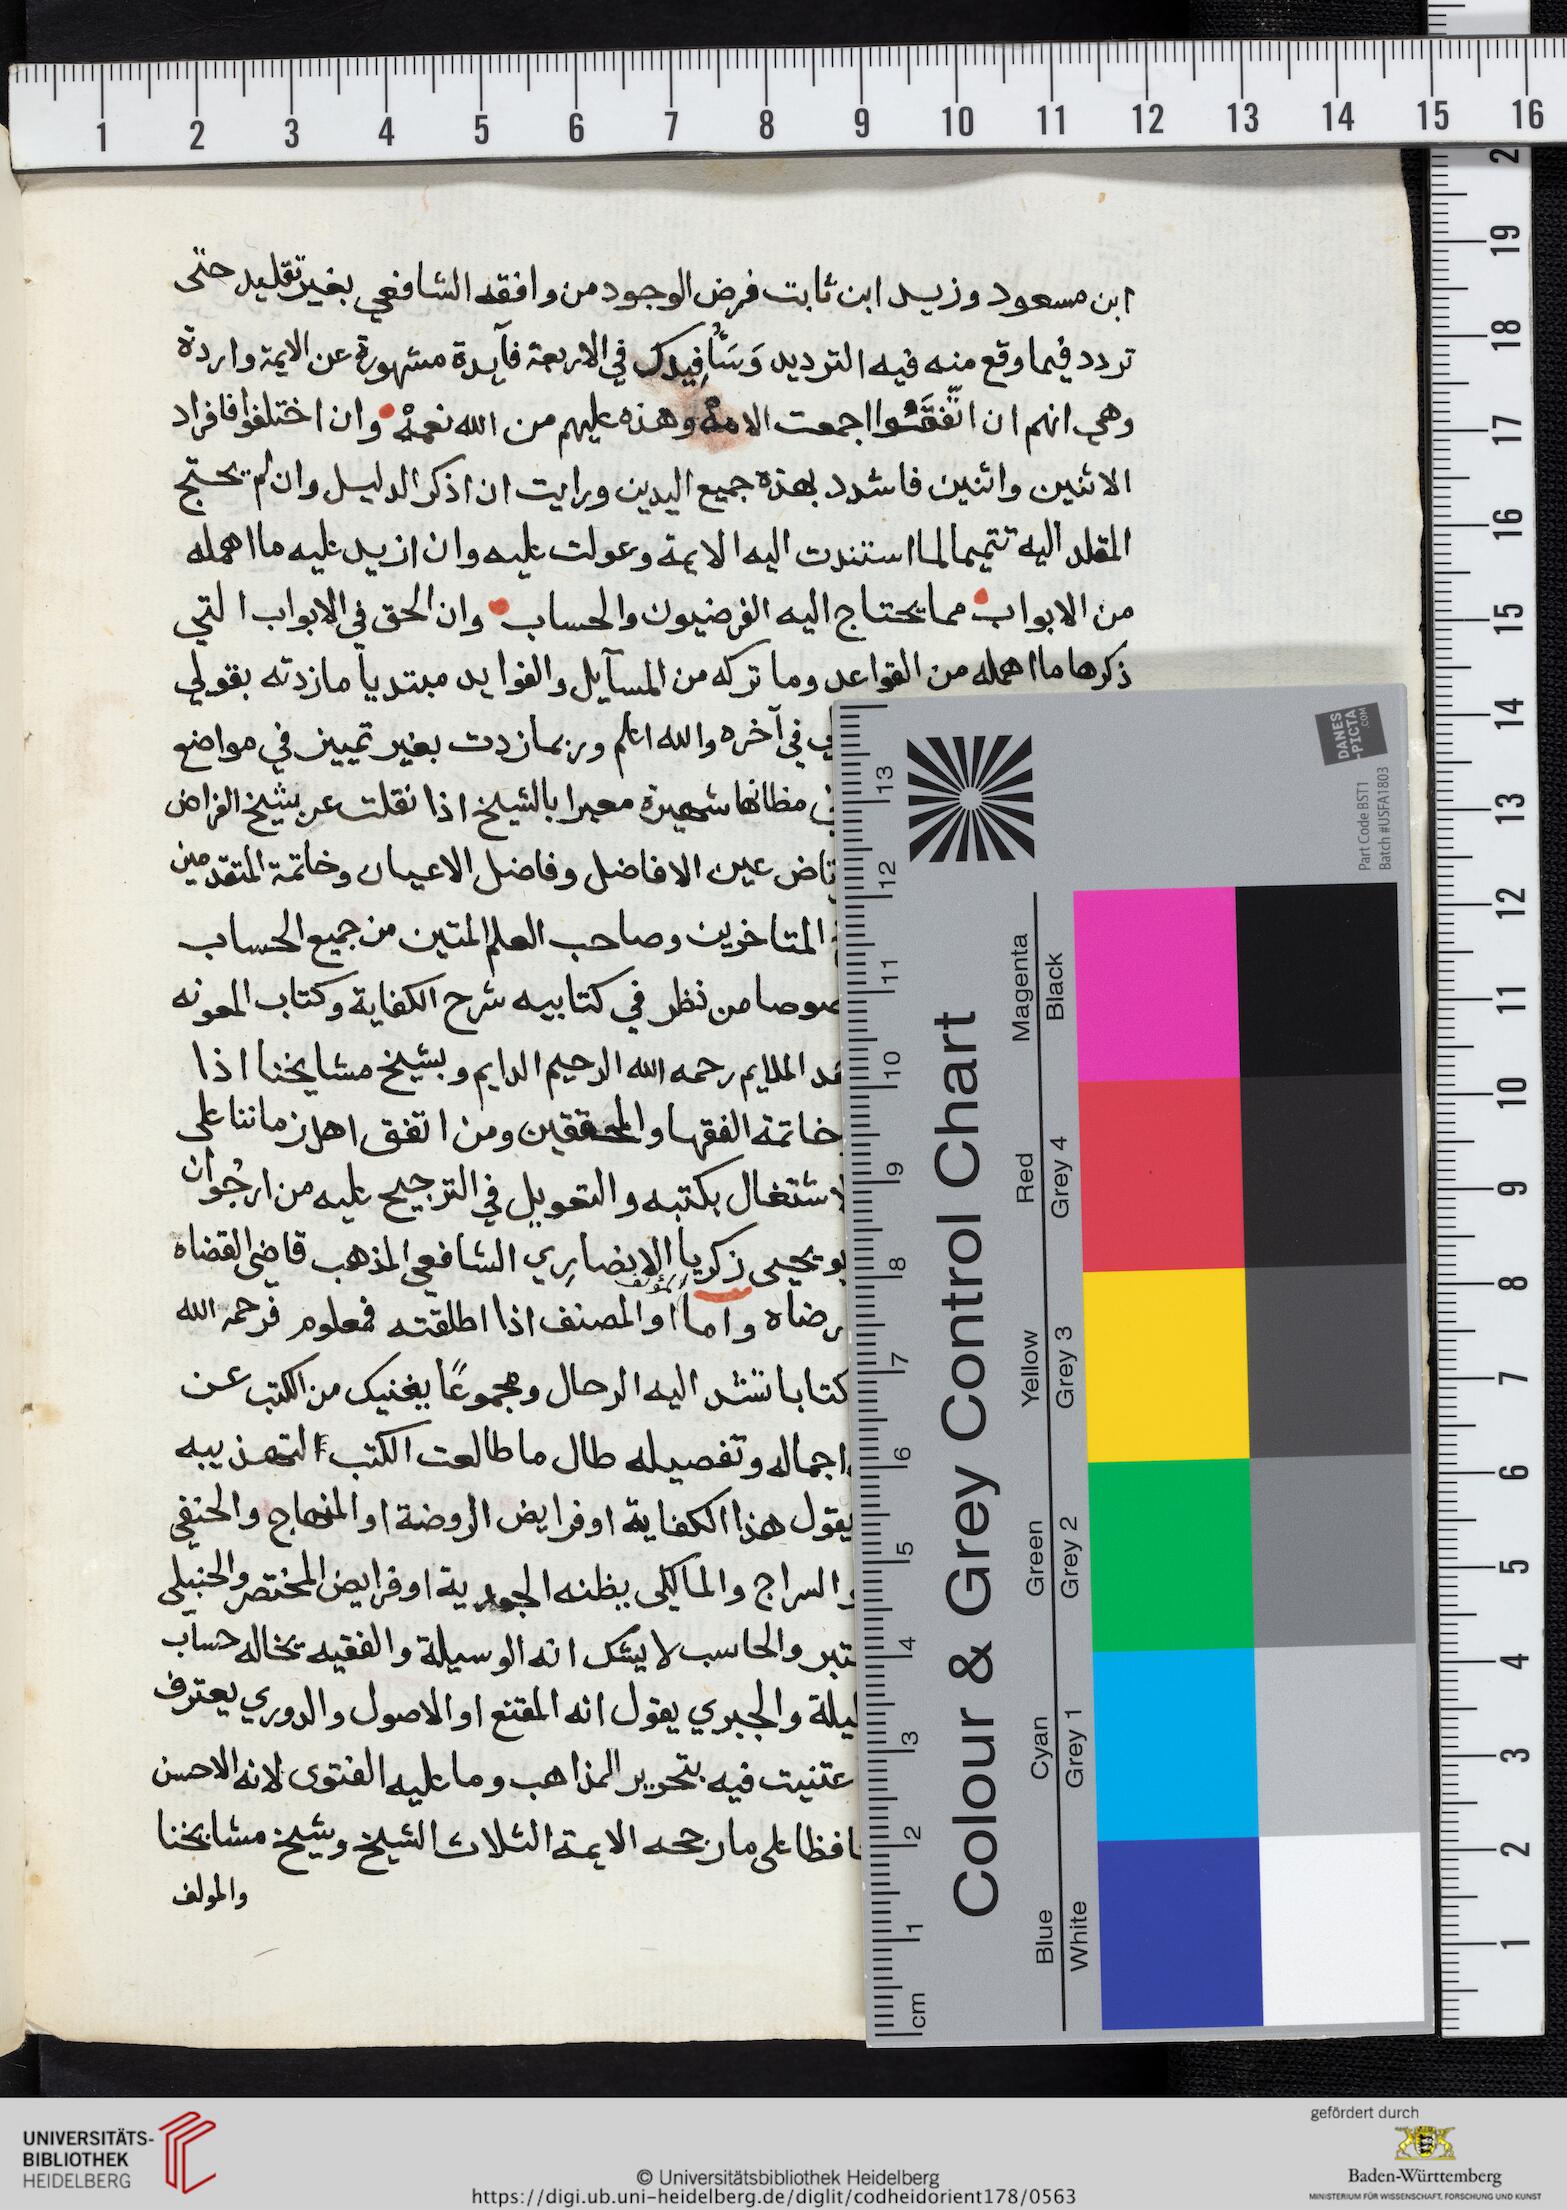 ابن مسعود وزيد ابن ثابت فرض الوجود من وافقه الشافعي بغير تقليد حتى
تردد فيما وقع منه فيه الترديد وَسَأُفِيدك في الاربعة فآيدة مشهورة عن الايمة واردة
وهي انهم ان اتَّفَقُوا اجمعت الامة وهذه عليهم من الله نعمة وان اختلفوا فافراد
الاثنين واثنين فاشدد بهذه جميع اليدين ورايت ان اذكر الدليل وان لم يحتج
المقلد اليه تتميما لما استندت اليه الايمة وعولت عليه وان ازيد عليه ما اهمله
من الابواب مما يحتاج اليه الفرضيون والحساب وان الحق في الابواب التي
ذكرها ما اهمله من القواعد وما تركه من المسآيل والفوايد مبتديا ما زدته بقولي
في آخره والله اعلم وربما زدت بغير تمييز في مواضع
مظانها شهيرة معبرا بالشيخ اذا نقلت عن شيخ الفراض
عين الافاضل وفاضل الاعيان وخاتمة المتقدمين
المتاخرين وصاحب العلم المتين من جميع الحساب
من نظر في كتابيه شرح الكفاية وكتاب المعونه
الملايم رحمه الله الرحيم الدايم وبشيخ مشايخنا اذا
خاتمة الفقها والمحققين ومن اتفق اهل زماننا على
شتغال بكتبه والتعويل في الترجيح عليه من ارجُوان
يحيى زكريا الانصارِي الشافعي المذهب قاضي القضاه
رضاه واما المؤلف او المصنف اذا اطلقته فمعلوم فرحمه الله
كتابا تشد اليه الرحال ومجموعًا يغنيك من الكتب عن
اجماله وتفصيله طال ما طالعت الكتب التهذيبه
يقول هذا الكفاية او فرايض الروضة او المنهاج والحنفي
والسراج والمالكي يظنه او فرايض المختصر والحنبلي
والحاسب لا يشك انه الوسيلة والفقيه يخاله حساب
والجبري يقول انه المقنع او الاصول والدوري يعترف
عتنيت فيه بتحرير المذاهب وما عليه الفتوى لانه الاحسن
افظا على ما رجحه الايمة الثلاث الشيخ وشيخ مشايخنا
والمولف
1 2 3 4 5 6 7 8 9 10 11 12 13 14 15 16
2 19 18 17 16 15 14 13 12 11 10 9 8 7 6 5 4 3 2 1
DANES
-PICTA
.COM
Part Code BST1
Batch #USFA1803
13 12 11 10 9 8 7 6 5 4 3 2 1 cm
Colour & Grey Control Chart
Magenta Red Yellow Green Cyan Blue
Black Grey 4 Grey 3 Grey 2 Grey 1 White
UNIVERSITÄTS-
BIBLIOTHEK
HEIDELBERG
© Universitätsbibliothek Heidelberg
https://digi.ub.uni-heidelberg.de/diglit/codheidorient178/0563
gefördert durch
Baden-Württemberg
MINISTERIUM FÜR WISSENSCHAFT, FORSCHUNG UND KUNST